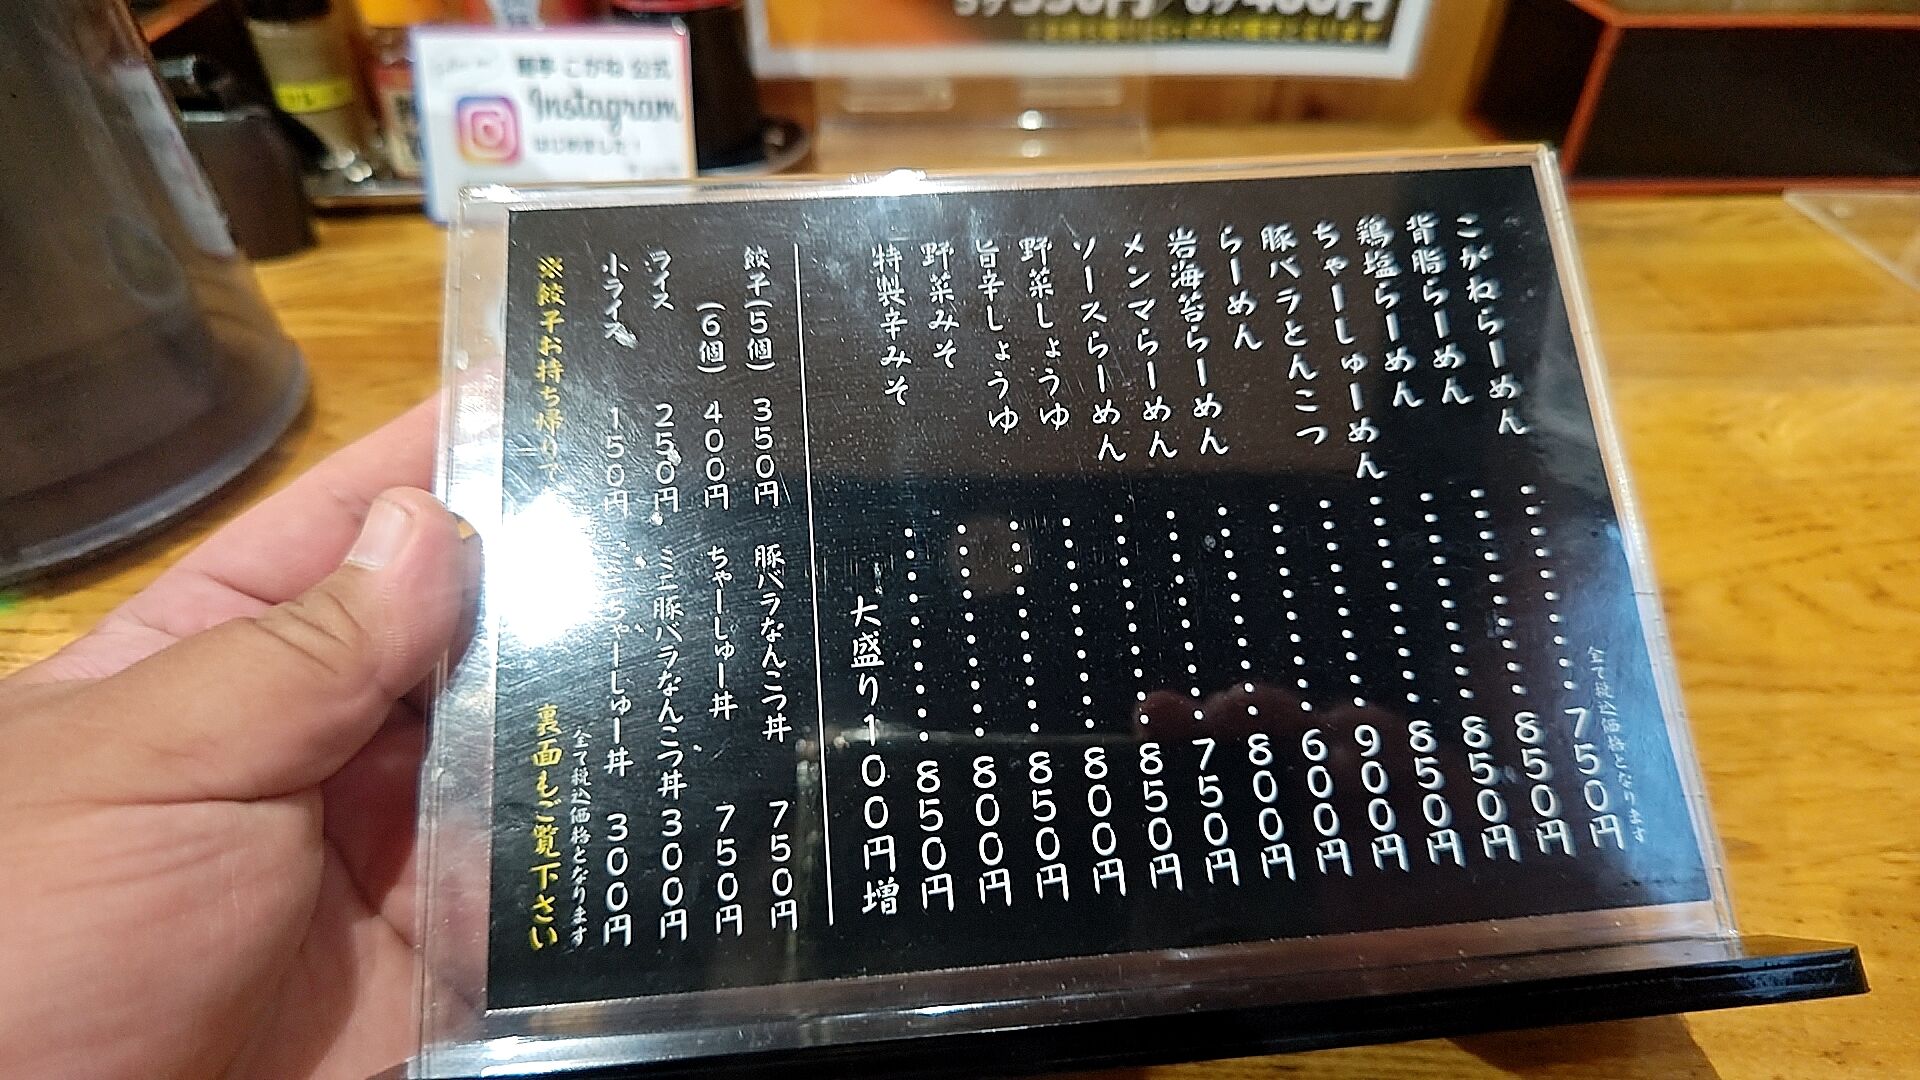 こがね 公式
Instagram
はじめました！
5ヶ350円/6ヶ400円
全て税込価格となります
こがねらーめん・・・・・・・・・・・750円
背脂らーめん・・・・・・・・・・・850円
鶏塩らーめん・・・・・・・・・・・850円
ちゃーしゅーめん・・・・・・・・・・・850円
豚バラとんこつ・・・・・・・・・・・900円
らーめん・・・・・・・・・・・600円
岩海苔らーめん・・・・・・・・・・・800円
メンマらーめん・・・・・・・・・・・750円
ソースらーめん・・・・・・・・・・・850円
野菜しょうゆ・・・・・・・・・・・800円
旨辛しょうゆ・・・・・・・・・・・850円
野菜みそ・・・・・・・・・・・800円
特製辛みそ・・・・・・・・・・・850円
大盛り100円増
餃子(5個) 350円 豚バラなんこつ丼 750円
(6個) 400円 ちゃーしゅー丼 750円
ライス 250円 ミニ豚バラなんこつ丼 300円
小ライス 150円 ちゃーしゅー丼 300円
全て税込価格となります
※餃子お持ち帰り 裏面もご覧下さい